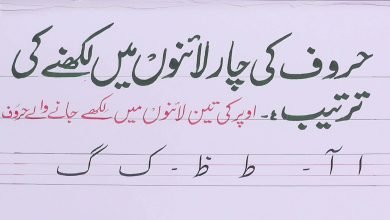 حروف کی چار لائنوں میں لکھنے کی
ترتیب :۔ اوپر کی تین لائنوں میں لکھے جانے والے حروف
ا آ - ط ظ - ک گ